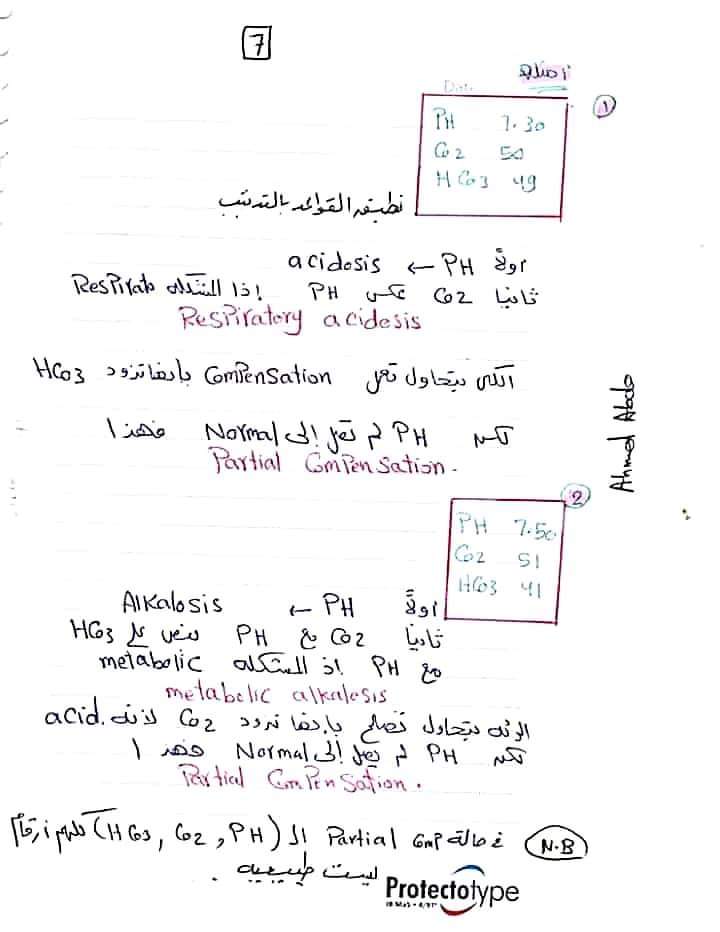 7
أمثلة
Date
1
PH 7.30
Co2 50
HCo3 49
نطبق القواعد بالترتيب
أولاً PH ← acidosis
ثانيا Co2 عكس PH إذا المشكله Respirato
Respiratory acidosis
الكلى بتحاول تعمل Compensation بانها تزود HCo3
لكن PH لم تصل إلى Normal فهذا
Partial Compensation.
Ahmed Abdo
2
PH 7.50
Co2 51
HCo3 41
أولاً PH ← Alkalosis
ثانياً Co2 مع PH HCo3
مع PH إذ المشكله metabolic
metabolic alkalosis
الرئه بتحاول تصلح بإنها تزود Co2 لأنه acid.
لكن PH لم يصل إلى Normal فهذا
Partial Compensation.
N.B في حالة Partial Comp الـ (HCo3, Co2, PH) كلهم أرقام
ليست طبيعيه .
Protectotype